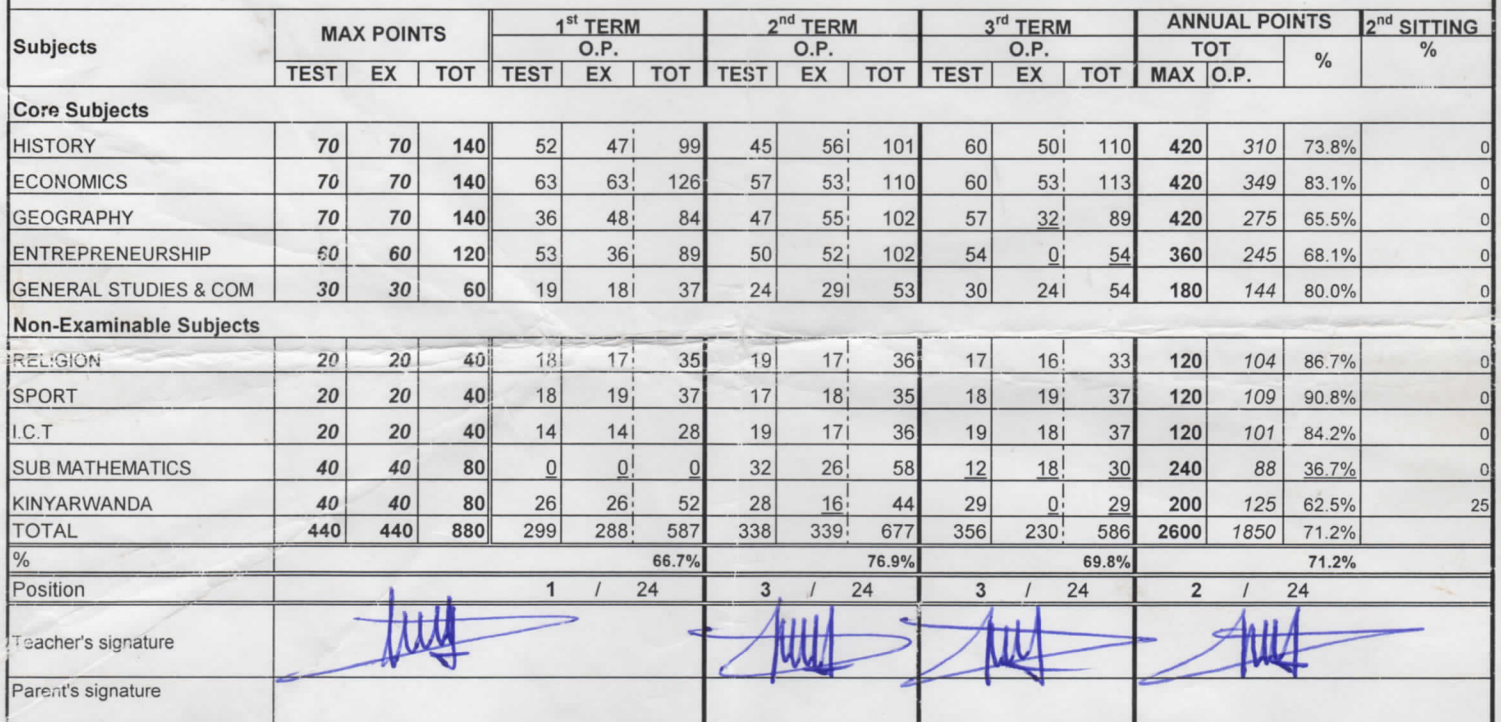 Subjects MAX POINTS 1st TERM 2nd TERM 3rd TERM ANNUAL POINTS 2nd SITTING
O.P. O.P. O.P. TOT % %
TEST EX TOT TEST EX TOT TEST EX TOT TEST EX TOT MAX O.P.
Core Subjects
HISTORY 70 70 140 52 47 99 45 56 101 60 50 110 420 310 73.8% 0
ECONOMICS 70 70 140 63 63 126 57 53 110 60 53 113 420 349 83.1% 0
GEOGRAPHY 70 70 140 36 48 84 47 55 102 57 32 89 420 275 65.5% 0
ENTREPRENEURSHIP 60 60 120 53 36 89 50 52 102 54 0 54 360 245 68.1% 0
GENERAL STUDIES & COM 30 30 60 19 18 37 24 29 53 30 24 54 180 144 80.0% 0
Non-Examinable Subjects
RELIGION 20 20 40 18 17 35 19 17 36 17 16 33 120 104 86.7% 0
SPORT 20 20 40 18 19 37 17 18 35 18 19 37 120 109 90.8% 0
I.C.T 20 20 40 14 14 28 19 17 36 19 18 37 120 101 84.2% 0
SUB MATHEMATICS 40 40 80 0 0 0 32 26 58 12 18 30 240 88 36.7% 0
KINYARWANDA 40 40 80 26 26 52 28 16 44 29 0 29 200 125 62.5% 25
TOTAL 440 440 880 299 288 587 338 339 677 356 230 586 2600 1850 71.2%
% 66.7% 76.9% 69.8% 71.2%
Position 1 / 24 3 / 24 3 / 24 2 / 24
Teacher's signature
Parent's signature